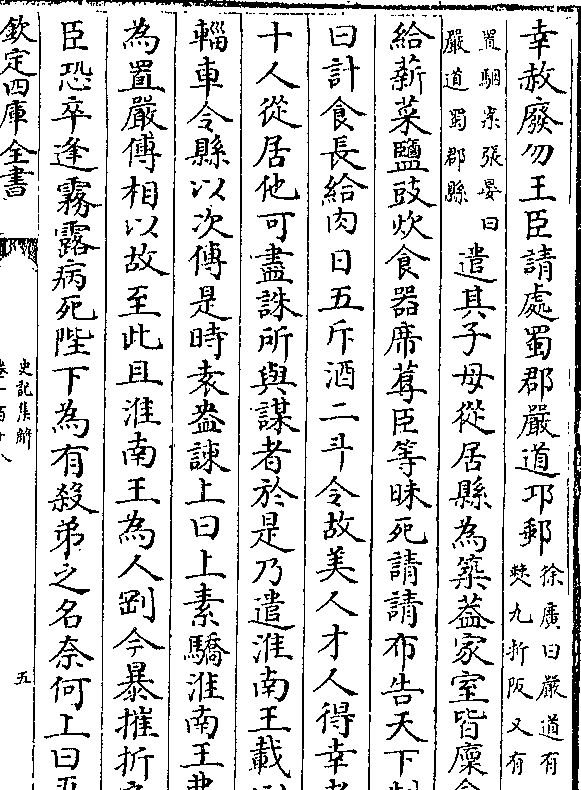 幸赦廢勿王臣請處蜀郡嚴道邛郵徐廣曰嚴道有
䇲九折阪又有
置駰案張晏曰
嚴道蜀郡縣
遣其子母從居縣為築葢家室皆廩
給薪菜鹽豉炊食器席蓐臣等昧死請請布告天下
曰計食長給肉日五斤酒二斗令故美人才人得幸
十人從居他可盡誅所與謀者於是乃遣淮南王載
輜車令縣以次傳是時袁盎諫上曰上素驕淮南王
為置嚴傅相以故至此且淮南王為人剛今暴摧折
臣恐卒逢霧露病死陛下為有殺弟之名奈何上曰
欽定四庫全書
史記集解
五